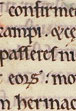 confirme
campi. &c
passeres in
eos: mo
n hermaa